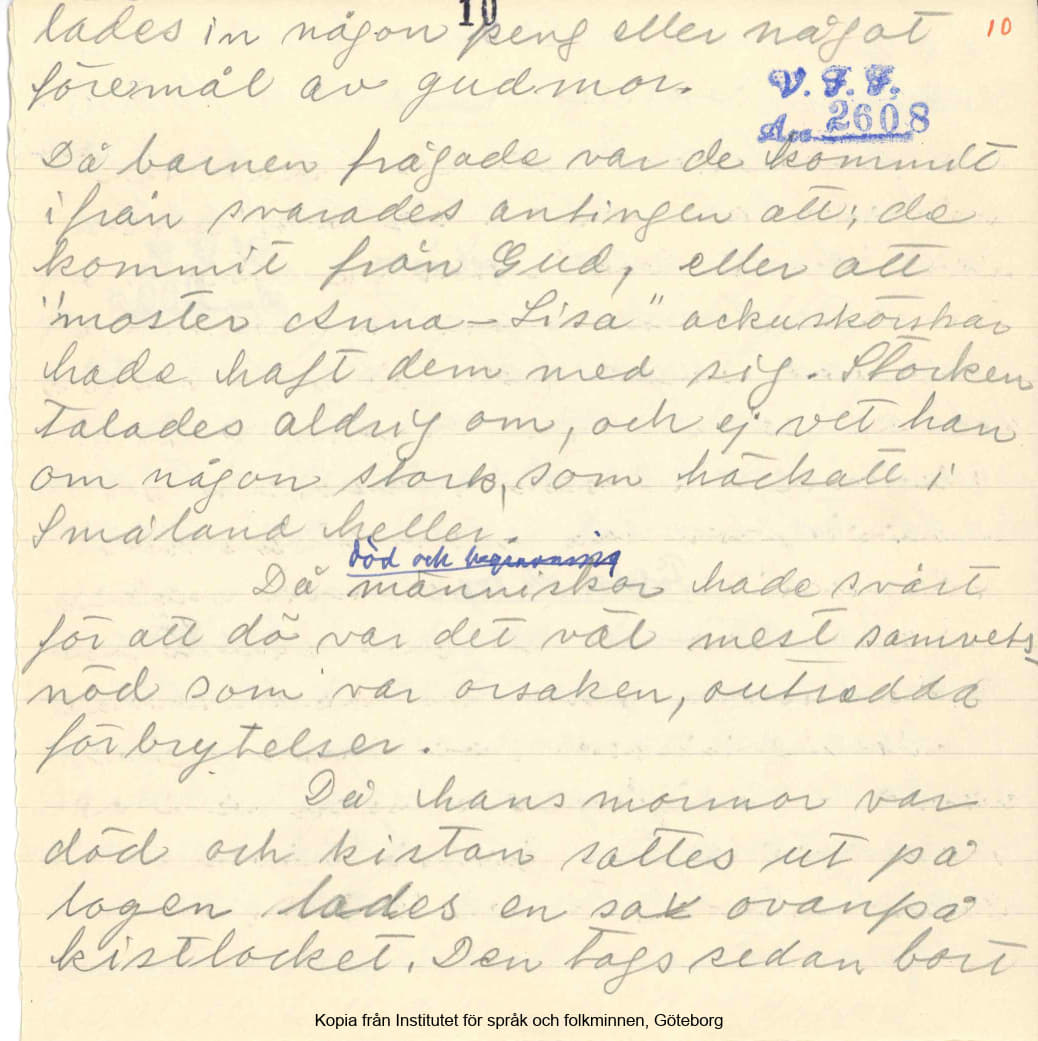 10
lades in någon peng eller något 10
föremål av gudmor.
V. F. F.
Acc. 2608
Då barnen frågade var de kommit
ifrån svarades antingen att; de
kommit från Gud, eller att
"moster Anna-Lisa" ackuskörskan
hade haft dem med sig. Storken
talades aldrig om, och ej vet han
om någon stork, som häckatt i
Småland heller.
död och begravning
Då människor hade svårt
för att dö var det väl mest samvets
nöd som var orsaken, outredda
förbrytelser.
Då hans mormor var
död och kistan sattes ut på
logen lades en sax ovanpå
kistlocket. Den togs sedan bort
Kopia från Institutet för språk och folkminnen, Göteborg